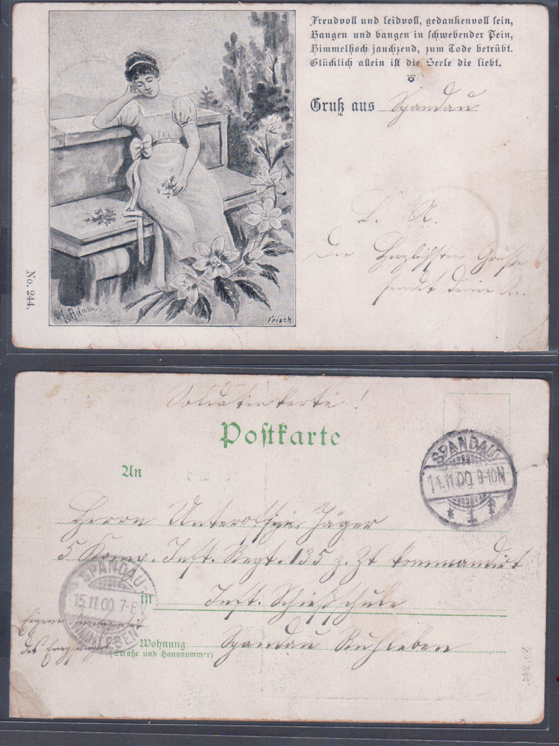 Freudvoll und leidvoll, gedankenvoll sein,
Bangen und bangen in schwebender Pein,
Himmelhoch jauchzend, zum Tode betrübt.
Glücklich allein ist die Seele die liebt.
Gruß aus Spandau
L. R.
Die herzlichsten Grüße
sendet Deine
No. 244.
Frisch
Soldatenkarte!
Postkarte
SPANDAU
14.11.00 9-10N
* 1 *
An
Herrn Unteroffizier Jäger
5 Komp. Inft. Regt. 135 z. Zt kommandirt
SPANDAU
15.11.00 7-8
RUHLEBEN
in Inft. Schießschule
Eigene
des Empfängers
Wohnung Spandau Ruhleben
(Straße und Hausnummer)